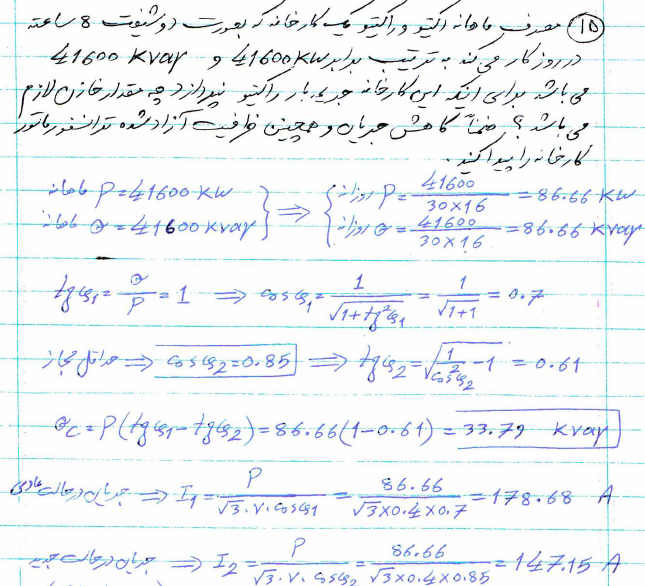 ۱۵ مصرف ماهانه اکتیو و راکتیو یک کارخانه که بصورت دو شیفت 8 ساعته
در روز کار می کند به ترتیب برابر 41600 KW و 41600 KVAR
می باشد برای اینکه این کارخانه جریمه بار راکتیو نپردازد چه مقدار خازن لازم
می باشد؟ ضمناً کاهش جریان و همچنین ظرفیت آزاد شده ترانسفورماتور
کارخانه را پیدا کنید.
ماهانه P = 41600 KW } ⇒ { روزانه P = 41600 / 30×16 = 86.66 KW
ماهانه Q = 41600 KVAR } ⇒ { روزانه Q = 41600 / 30×16 = 86.66 KVAR
tgφ₁ = Q/P = 1 ⇒ cosφ₁ = 1/√(1+tg²φ₁) = 1/√(1+1) = 0.7
حداقل مجاز ⇒ cosφ₂ = 0.85 ⇒ tgφ₂ = √(1/cos²φ₂ − 1) = 0.61
Qc = P(tgφ₁ − tgφ₂) = 86.66(1−0.61) = 33.79 KVAR
جریان در حالت عادی ⇒ I₁ = P/√3.V.cosφ₁ = 86.66/√3×0.4×0.7 = 178.68 A
جریان در حالت جدید ⇒ I₂ = P/√3.V.cosφ₂ = 86.66/√3×0.4×0.85 = 147.15 A